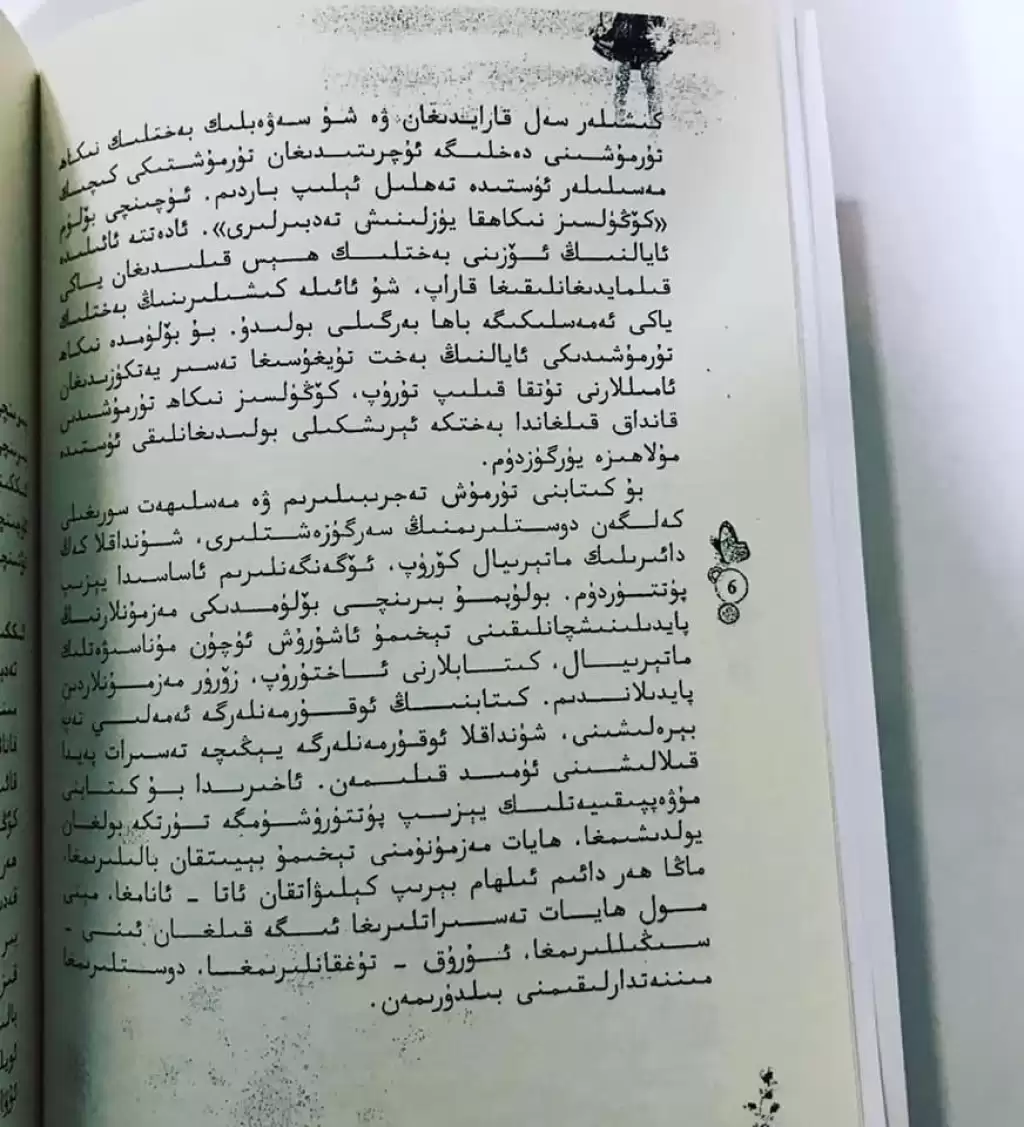 كىشىلەر سەل قارايدىغان، ۋە شۇ سەۋەبلىك بەختلىك نىكاھ
تۇرمۇشىنى دەخلىگە ئۇچرىتىدىغان تۇرمۇشتىكى كىچىك
مەسىلىلەر ئۈستىدە تەھلىل ئېلىپ باردىم. ئۈچىنچى بۆلۈم
«كۆڭۈلسىز نىكاھقا يۈزلىنىش تەدبىرلىرى». ئادەتتە ئائىلىدە
ئايالنىڭ ئۆزىنى بەختلىك ھېس قىلىدىغان ياكى
قىلمايدىغانلىقىغا قاراپ، شۇ ئائىلە كىشىلىرىنىڭ بەختلىك
ياكى ئەمەسلىكىگە باھا بەرگىلى بولىدۇ. بۇ بۆلۈمدە نىكاھ
تۇرمۇشىدىكى ئايالنىڭ بەخت تۇيغۇسىغا تەسىر يەتكۈزىدىغان
ئامىللارنى تۇتقا قىلىپ تۇرۇپ، كۆڭۈلسىز نىكاھ تۇرمۇشىدىن
قانداق قىلغاندا بەختكە ئېرىشكىلى بولىدىغانلىقى ئۈستىدە
مۇلاھىزە يۈرگۈزدۈم.
بۇ كىتابنى تۇرمۇش تەجرىبىلىرىم ۋە مەسلىھەت سورىغىلى
كەلگەن دوستلىرىمنىڭ سەرگۈزەشتلىرى، شۇنداقلا كەڭ
دائىرىلىك ماتېرىيال كۆرۈپ، ئۆگەنگەنلىرىم ئاساسىدا يېزىپ
پۈتتۈردۈم. بولۇپمۇ بىرىنچى بۆلۈمدىكى مەزمۇنلارنىڭ
پايدىلىنىشچانلىقىنى تېخىمۇ ئاشۇرۇش ئۈچۈن مۇناسىۋەتلىك
ماتېرىيال، كىتابلارنى ئاختۇرۇپ، زۆرۈر مەزمۇنلاردىن
پايدىلاندىم. كىتابنىڭ ئوقۇرمەنلەرگە ئەمەلىي نەپ
بېرەلىشىنى، شۇنداقلا ئوقۇرمەنلەرگە يېڭىچە تەسىرات پەيدا
قىلالىشىنى ئۈمىد قىلىمەن. ئاخىرىدا بۇ كىتابنى
مۇۋەپپىقىيەتلىك يېزىپ پۈتتۈرۈشۈمگە تۈرتكە بولغان
يولدىشىمغا، ھايات مەزمۇنۇمنى تېخىمۇ بېيىتقان بالىلىرىمغا،
ماڭا ھەر دائىم ئىلھام بېرىپ كېلىۋاتقان ئاتا - ئانامغا، مېنى
مول ھايات تەسىراتلىرىغا ئىگە قىلغان ئىنى -
سىڭىللىرىمغا، ئۇرۇق - تۇغقانلىرىمغا، دوستلىرىمغا
مىننەتدارلىقىمنى بىلدۈرىمەن.
6